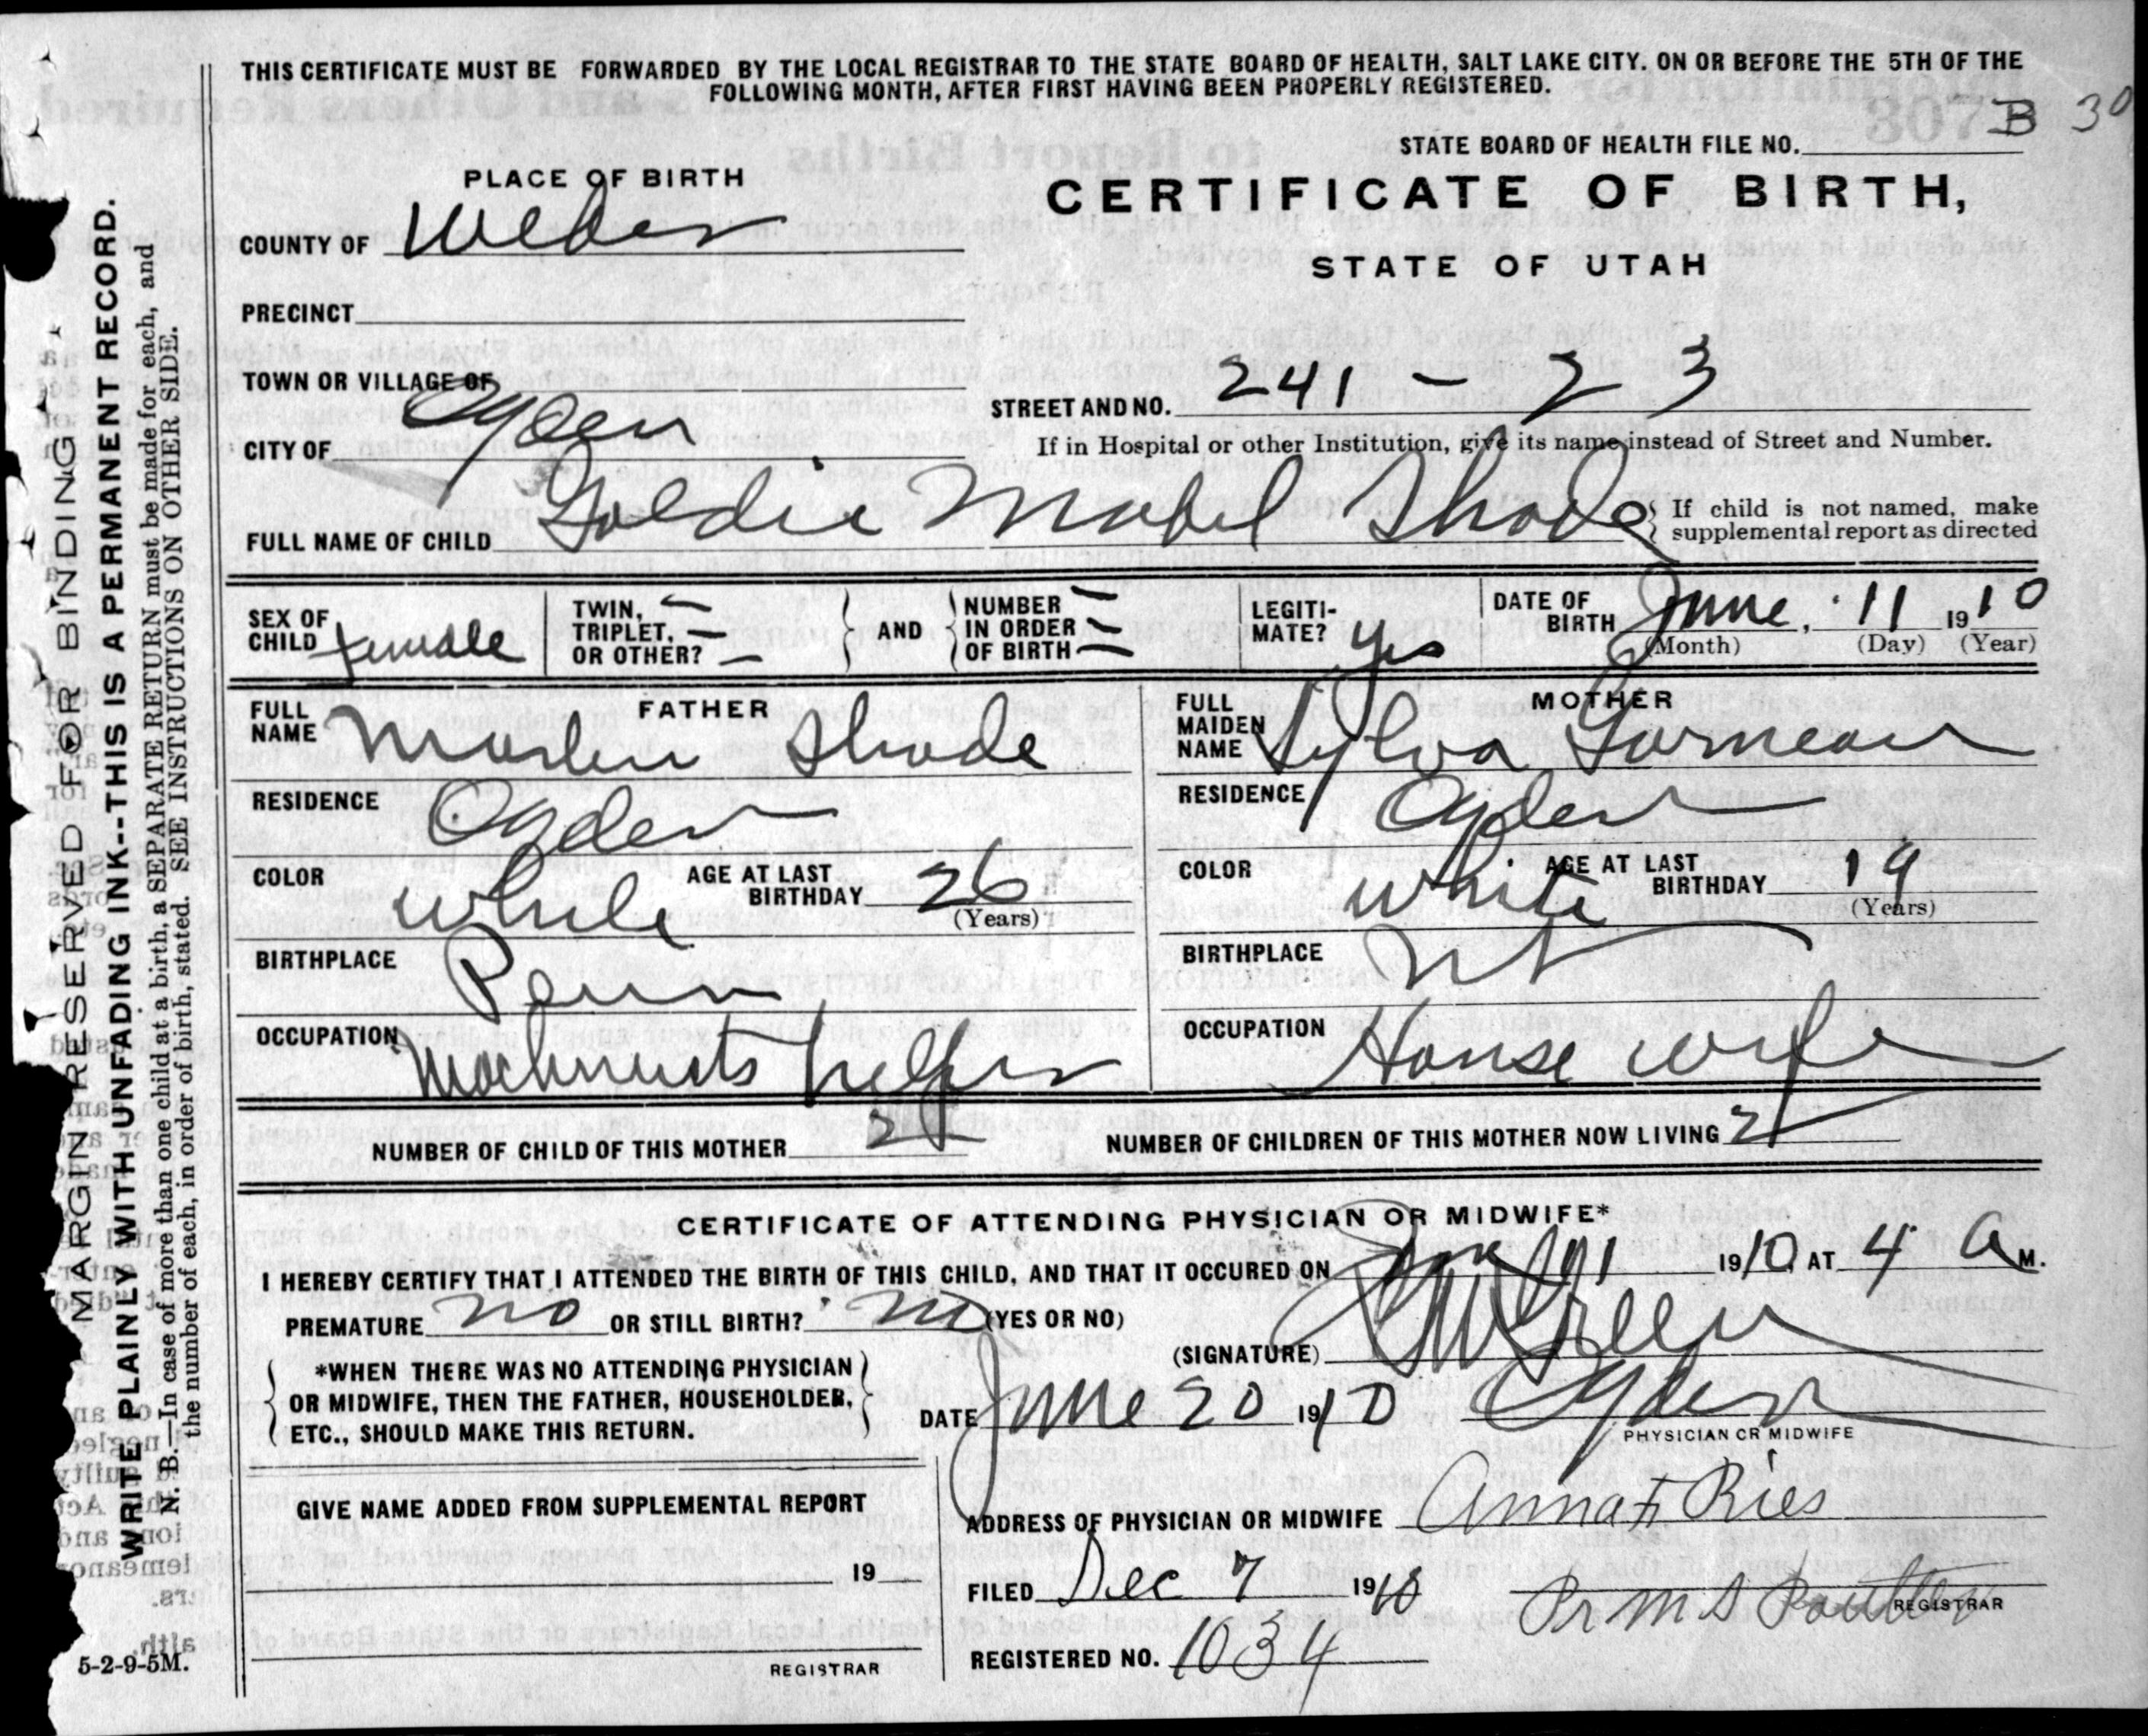 THIS CERTIFICATE MUST BE FORWARDED BY THE LOCAL REGISTRAR TO THE STATE BOARD OF HEALTH, SALT LAKE CITY. ON OR BEFORE THE 5TH OF THE
FOLLOWING MONTH, AFTER FIRST HAVING BEEN PROPERLY REGISTERED.
B 30
STATE BOARD OF HEALTH FILE NO.
PLACE OF BIRTH
CERTIFICATE OF BIRTH,
COUNTY OF Weber
STATE OF UTAH
PRECINCT
TOWN OR VILLAGE OF
STREET AND NO. 241 - 23
CITY OF Ogden
If in Hospital or other Institution, give its name instead of Street and Number.
FULL NAME OF CHILD Goldie Mabel Shade
If child is not named, make
supplemental report as directed
SEX OF CHILD female
TWIN, — TRIPLET, — OR OTHER? —
AND
NUMBER — IN ORDER — OF BIRTH —
LEGITI-MATE? yes
DATE OF BIRTH June, 11 1910
(Month) (Day) (Year)
FATHER
FULL NAME Marlin Shade
RESIDENCE Ogden
COLOR White AGE AT LAST BIRTHDAY 26
(Years)
BIRTHPLACE Penn
OCCUPATION Machinists helper
MOTHER
FULL MAIDEN NAME Sylva
RESIDENCE Ogden
COLOR White AGE AT LAST BIRTHDAY 19
(Years)
BIRTHPLACE
OCCUPATION House wife
NUMBER OF CHILD OF THIS MOTHER 2
NUMBER OF CHILDREN OF THIS MOTHER NOW LIVING 2
CERTIFICATE OF ATTENDING PHYSICIAN OR MIDWIFE*
I HEREBY CERTIFY THAT I ATTENDED THE BIRTH OF THIS CHILD, AND THAT IT OCCURED ON June 11 1910 AT 4 A M.
PREMATURE no OR STILL BIRTH? no (YES OR NO)
(SIGNATURE) Green
*WHEN THERE WAS NO ATTENDING PHYSICIAN
OR MIDWIFE, THEN THE FATHER, HOUSEHOLDER,
ETC., SHOULD MAKE THIS RETURN.
DATE June 20 1910 Ogden
PHYSICIAN OR MIDWIFE
GIVE NAME ADDED FROM SUPPLEMENTAL REPORT
19
REGISTRAR
ADDRESS OF PHYSICIAN OR MIDWIFE Anna F Ries
FILED Dec 7 1910 Pr M S
REGISTRAR
REGISTERED NO. 1034
MARGIN RESERVED FOR BINDING
WRITE PLAINLY WITH UNFADING INK--THIS IS A PERMANENT RECORD.
N. B.—In case of more than one child at a birth, a SEPARATE RETURN must be made for each, and
the number of each, in order of birth, stated. SEE INSTRUCTIONS ON OTHER SIDE.
5-2-9-5M.